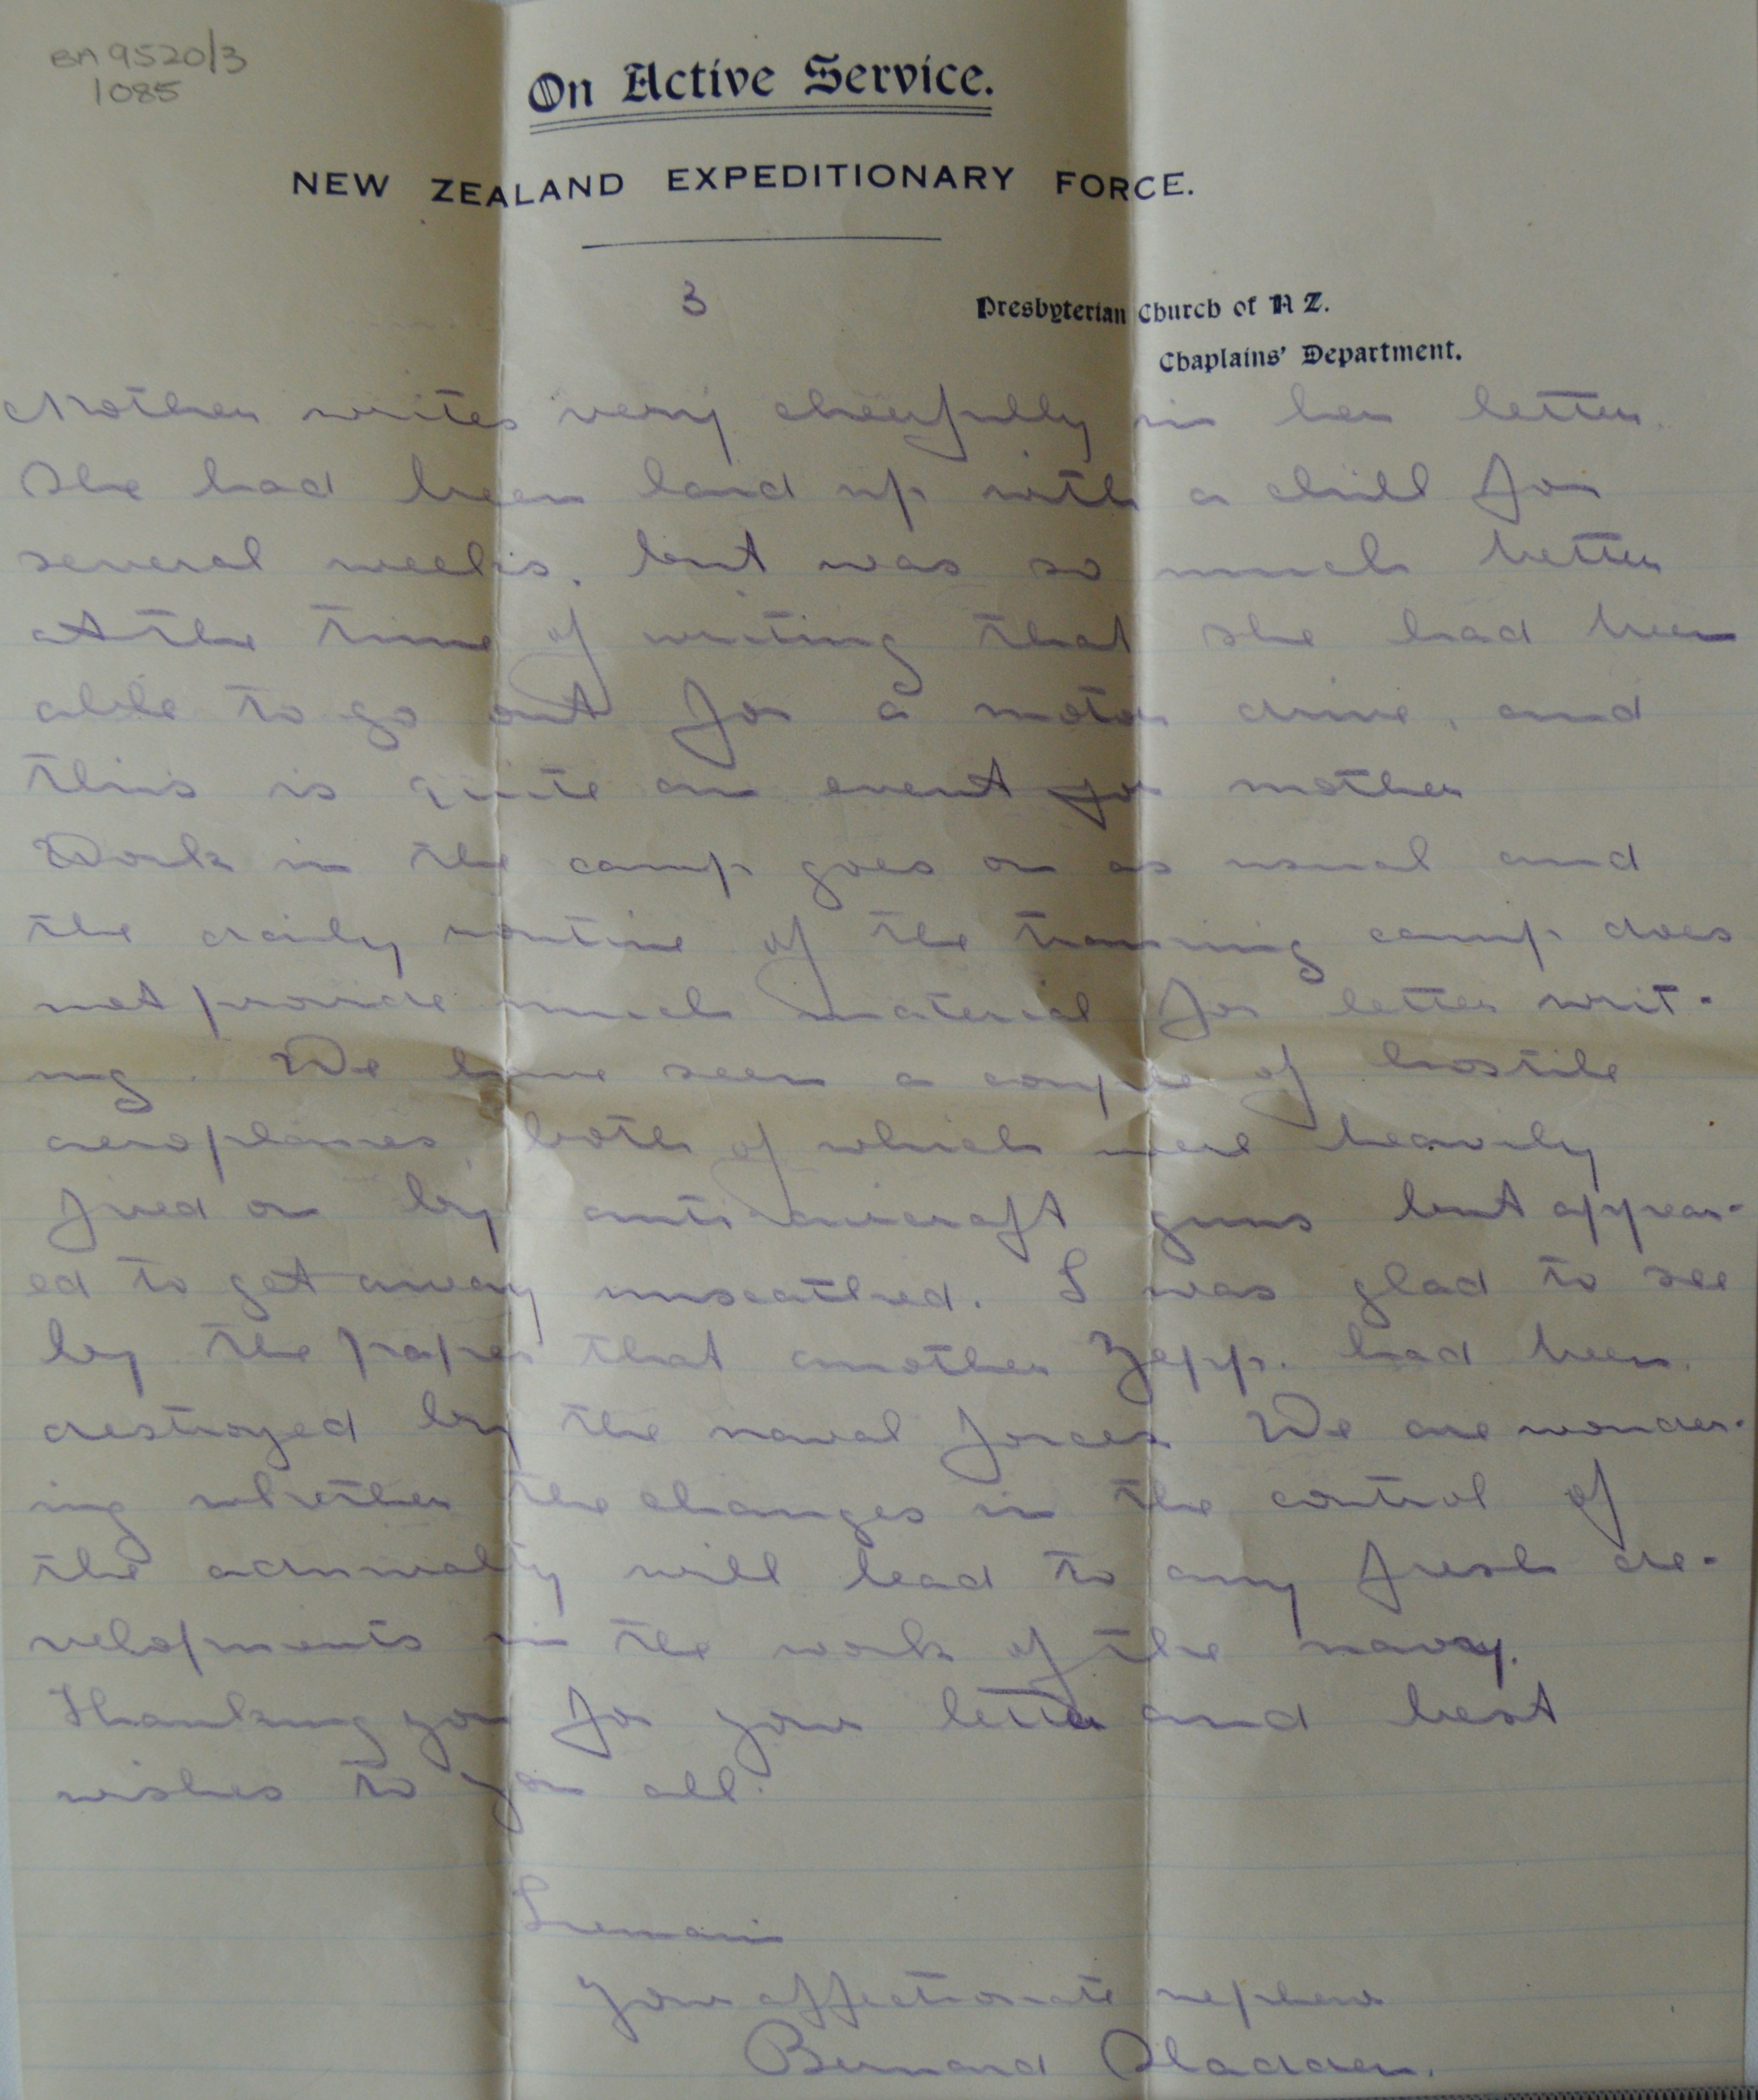 en 9520/3
1085
On Active Service.
NEW ZEALAND EXPEDITIONARY FORCE.
3
Presbyterian Church of N Z.
Chaplains' Department.
Mother writes very cheerfully in her letter.
She had been laid up with a chill for
several weeks, but was so much better
at the time of writing that she had been
able to go out for a motor drive, and
this is quite an event for mother
Work in the camp goes on as usual and
the daily routine of the training camp does
not provide much material for letter writ-
ing. We have seen a couple of hostile
aeroplanes, both of which were heavily
fired on by anti aircraft guns but appear-
ed to get away unscathed. I was glad to see
by the paper that another Zepp. had been
destroyed by the naval forces We are wonder-
ing whether the changes in the control of
the admiralty will lead to any fresh de-
velopments in the work of the navy.
Thanking you for your letter and best
wishes to you all.
I remain
Your affectionate nephew
Bernard Sladden.